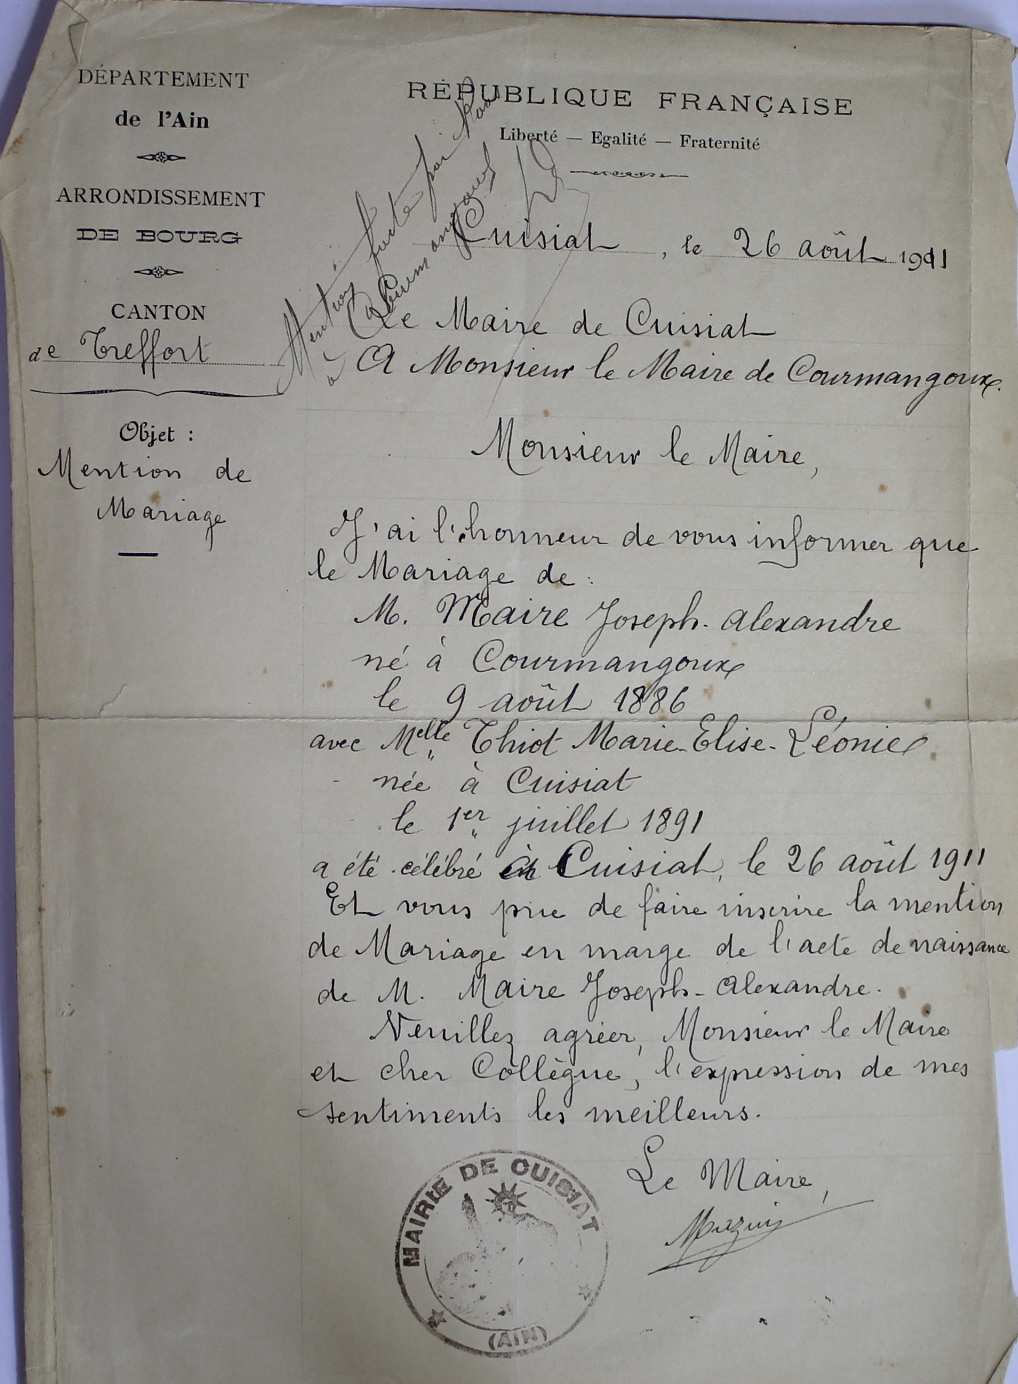 DÉPARTEMENT
de l'Ain
ARRONDISSEMENT
DE BOURG
CANTON
de Treffort
Objet :
Mention de
Mariage
RÉPUBLIQUE FRANÇAISE
Liberté — Egalité — Fraternité
Mention faite par Nous
à Courmangoux
Cuisiat, le 26 août 1911
Le Maire de Cuisiat
A Monsieur le Maire de Courmangoux.
Monsieur le Maire,
J'ai l'honneur de vous informer que
le Mariage de :
M. Maire Joseph-Alexandre
né à Courmangoux
le 9 août 1886
avec Melle Thiot Marie-Elise-Léonie
née à Cuisiat
le 1er juillet 1891
a été célébré à Cuisiat, le 26 août 1911
Et vous prie de faire inscrire la mention
de Mariage en marge de l'acte de naissance
de M. Maire Joseph-Alexandre.
Veuillez agréer, Monsieur le Maire
et cher Collègue, l'expression de mes
sentiments les meilleurs.
Le Maire,
MAIRIE DE CUISIAT
(AIN)